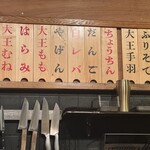 ふりそで
大王手羽
ちょうちん
だんご
レバー
やげん
大王もも
はらみ
大王むね